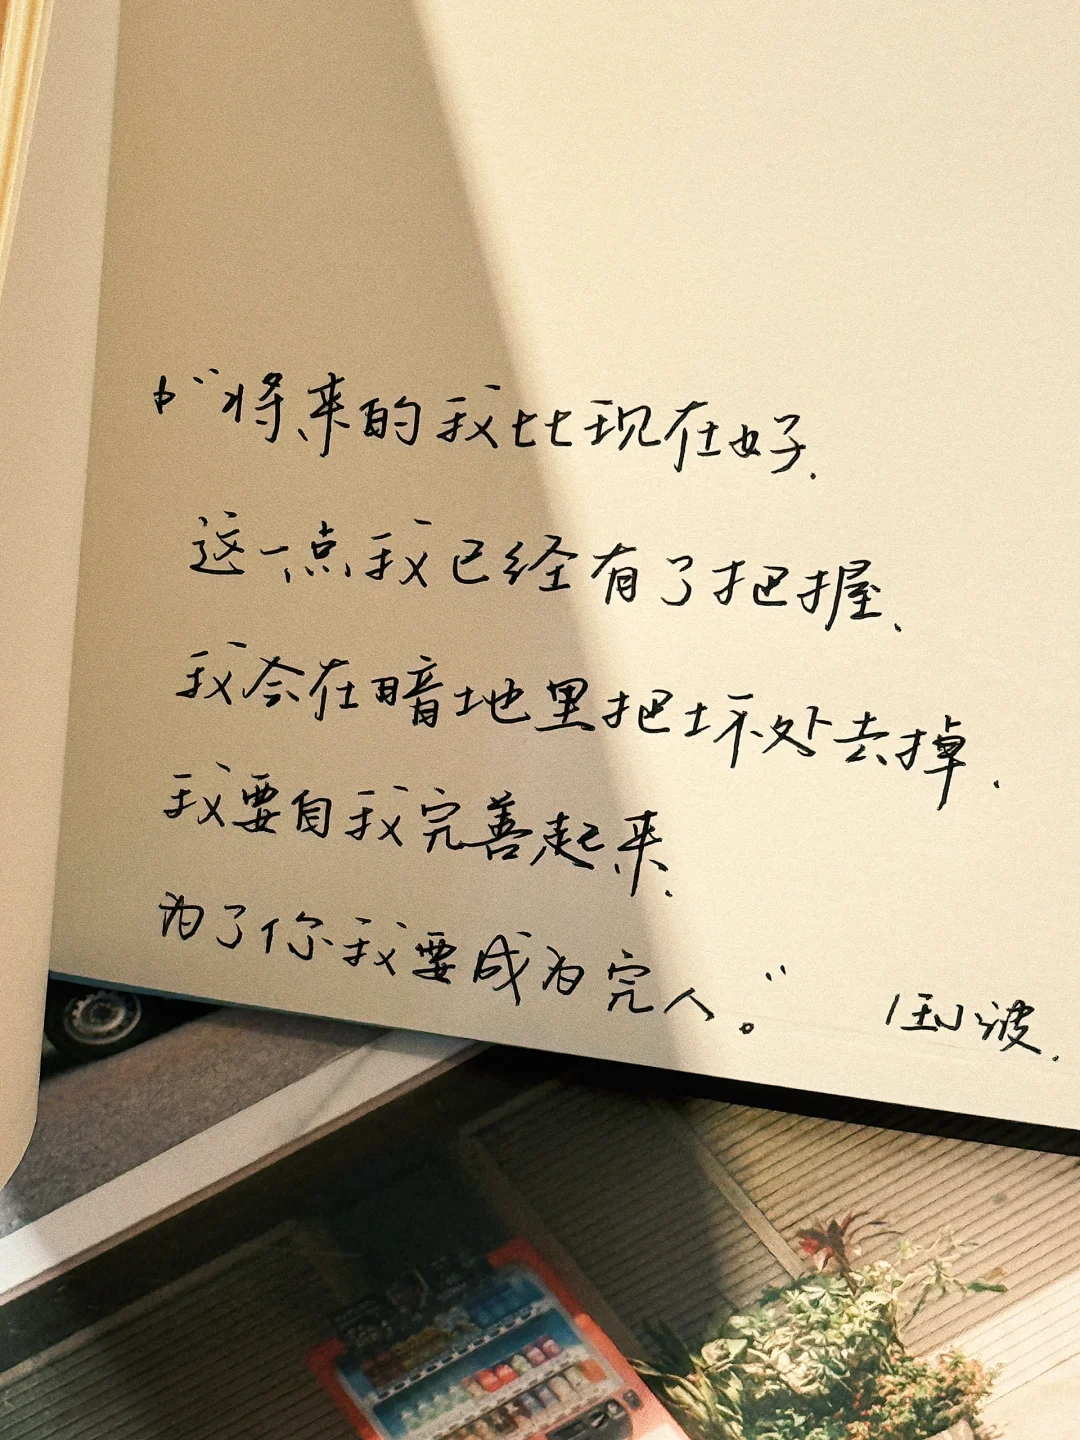 “将来的我比现在好.
这一点我已经有了把握、
我会在暗地里把坏处去掉.
我要自我完善起来.
为了你我要成为完人。”
王小波.